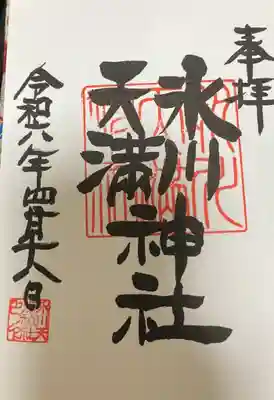 奉拝
氷川
天満
神社
令和八年四月十六日